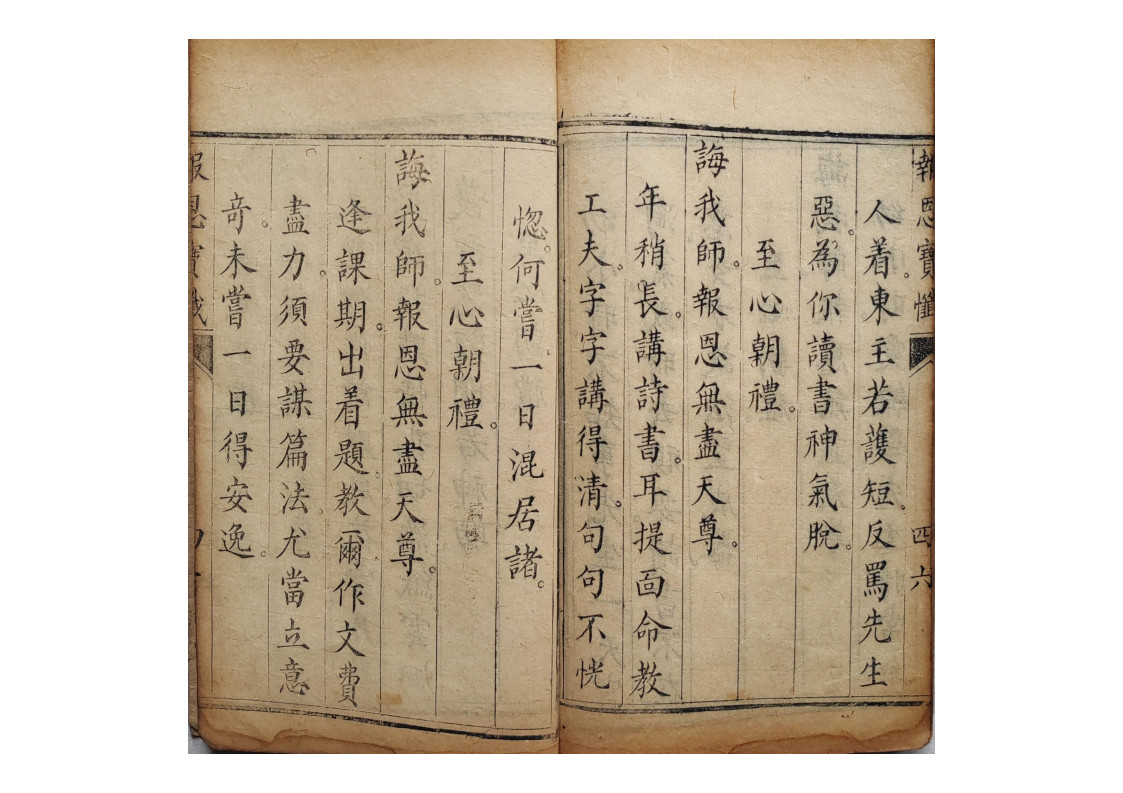 報恩寶懺
四六
人着。東主若護短。反罵先生
惡。為你讀書神氣脫。
至心朝禮。
誨我師。報恩無盡天尊。
年稍長。講詩書。耳提面命教
工夫。字字講得清。句句不恍
惚。何嘗一日混居諸。
至心朝禮。
誨我師。報恩無盡天尊。
逢課期。出着題。教爾作文費
盡力。須要謀篇法。尤當立意
奇。未嘗一日得安逸。
報恩寶懺